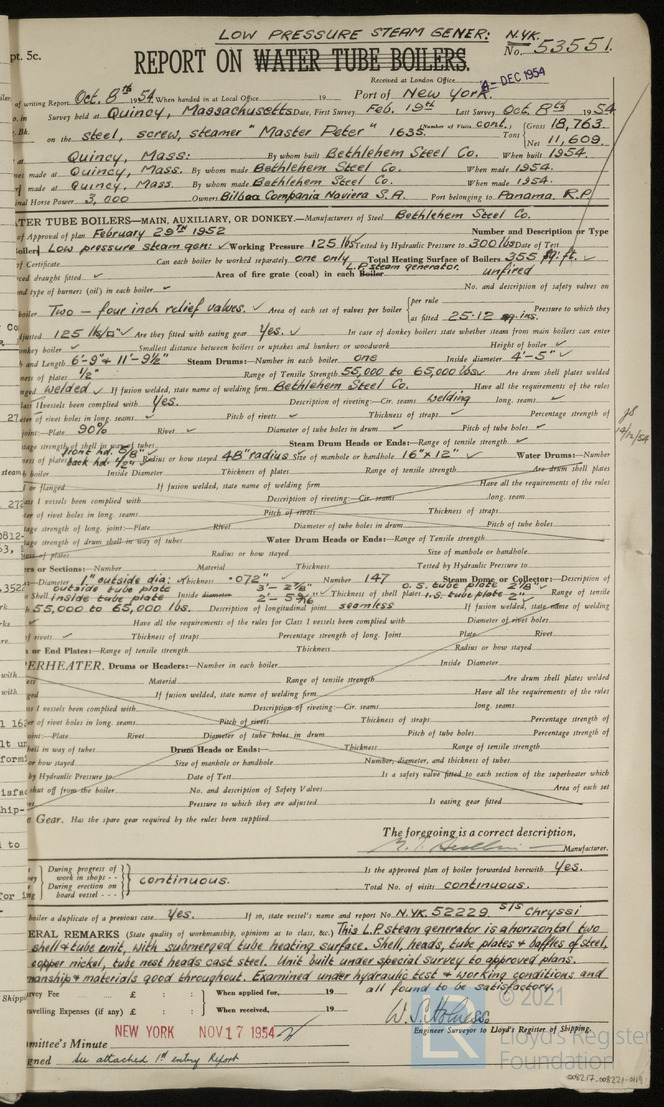 LOW PRESSURE STEAM GENER: N.YK.
pt. 5c. REPORT ON WATER TUBE BOILERS. No. 53551.
Received at London Office DEC 1954
of writing Report Oct. 8th 1954 When handed in at Local Office 19 Port of New York.
Survey held at Quincy, Massachusetts Date, First Survey Feb. 19th Last Survey Oct. 8th 1954
on the steel, screw, steamer "Master Peter" 1635 Number of Visits cont. Tons Gross 18,763. Net 11,609.
at Quincy, Mass: By whom built Bethlehem Steel Co. When built 1954.
nes made at Quincy, Mass. By whom made Bethlehem Steel Co. When made 1954.
made at Quincy, Mass. By whom made Bethlehem Steel Co. When made 1954.
nal Horse Power 3,000 Owners Bilbao Compania Naviera S.A. Port belonging to Panama, R.P.
ATER TUBE BOILERS—MAIN, AUXILIARY, OR DONKEY.—Manufacturers of Steel Bethlehem Steel Co.
of Approval of plan February 29th 1952 Number and Description or Type
Boiler Low pressure steam gen: Working Pressure 125 lbs Tested by Hydraulic Pressure to 300 lbs Date of Test
of Certificate Can each boiler be worked separately one only Total Heating Surface of Boilers 355 sq.ft.
rced draught fitted Area of fire grate (coal) in each Boiler L.P. steam generator. unfired
nd type of burners (oil) in each boiler No. and description of safety valves on
boiler Two - four inch relief valves. Area of each set of valves per boiler per rule as fitted 25.12 sq.ins. Pressure to which they
djusted 125 lbs/□" Are they fitted with easing gear Yes. In case of donkey boilers state whether steam from main boilers can enter
onkey boiler Smallest distance between boilers or uptakes and bunkers or woodwork Height of boiler
h and Length 6'-9" & 11'-9½" Steam Drums:—Number in each boiler one Inside diameter 4'-5"
ness of plates ½" Range of Tensile Strength 55,000 to 65,000 lbs Are drum shell plates welded
nged welded If fusion welded, state name of welding firm Bethlehem Steel Co. Have all the requirements of the rules
lass I vessels been complied with Yes. Description of riveting:—Cir. seams welding long. seams
eter of rivet holes in long. seams Pitch of rivets Thickness of straps Percentage strength of
joint:—Plate 90% Rivet Diameter of tube holes in drum Pitch of tube holes
tage strength of shell in way of tubes Steam Drum Heads or Ends:—Range of tensile strength
ness of plates front hd. 5/8" back hd. ½" Radius or how stayed 48" radius Size of manhole or handhole 16" x 12" Water Drums:—Number
h boiler Inside Diameter Thickness of plates Range of tensile strength Are drum shell plates
d or flanged If fusion welded, state name of welding firm Have all the requirements of the rules
ass I vessels been complied with Description of riveting:—Cir. seams long. seam
ter of rivet holes in long. seams Pitch of rivets Thickness of straps
tage strength of long. joint:—Plate Rivet Diameter of tube holes in drum Pitch of tube holes
tage strength of drum shell in way of tubes Water Drum Heads or Ends:—Range of Tensile strength
ness of plates Radius or how stayed Size of manhole or handhole
ers or Sections:—Number Material Thickness Tested by Hydraulic Pressure to
—Diameter 1" outside dia: Thickness .072" Number 147 Steam Dome or Collector:—Description of
outside tube plate 3'-2⅞" O.S. tube plate 2⅛"
Shell inside tube plate Inside diameter 2'-5 9/16" Thickness of shell plates I.S. tube plate 2" Range of tensile
55,000 to 65,000 lbs. Description of longitudinal joint seamless If fusion welded, state name of welding
Have all the requirements of the rules for Class I vessels been complied with Diameter of rivet holes
of rivets Thickness of straps Percentage strength of long. Joint Plate Rivet
n or End Plates:—Range of tensile strength Thickness Radius or how stayed
ERHEATER. Drums or Headers:—Number in each boiler Inside Diameter
Material Range of tensile strength Are drum shell plates welded
ged If fusion welded, state name of welding firm Have all the requirements of the rules
s I vessels been complied with Description of riveting:—Cir. seams long. seams
er of rivet holes in long. seams Pitch of rivets Thickness of straps Percentage strength of
oint:—Plate Rivet Diameter of tube holes in drum Pitch of tube holes Percentage strength of
hell in way of tubes Drum Heads or Ends:— Thickness Range of tensile strength
or how stayed Size of manhole or handhole Number, diameter, and thickness of tubes
by Hydraulic Pressure to Date of Test Is a safety valve fitted to each section of the superheater which
shut off from the boiler No. and description of Safety Valves Area of each set
Pressure to which they are adjusted Is easing gear fitted
e Gear. Has the spare gear required by the rules been supplied
The foregoing is a correct description,
Manufacturer.
During progress of work in shops - - Is the approved plan of boiler forwarded herewith Yes.
During erection on board vessel - - - continuous. Total No. of visits continuous.
boiler a duplicate of a previous case Yes. If so, state vessel's name and report No. N.YK. 52229 S/S Chryssi
ERAL REMARKS (State quality of workmanship, opinions as to class, &c.) This L.P. steam generator is a horizontal two
shell & tube unit, with submerged tube heating surface. Shell, heads, tube plates & baffles of steel,
copper nickel, tube nest heads cast steel. Unit built under special survey to approved plans.
manship & materials good throughout. Examined under hydraulic test & working conditions and
all found to be satisfactory.
rvey Fee £ : : When applied for, 19
avelling Expenses (if any) £ : : When received, 19
Engineer Surveyor to Lloyd's Register of Shipping.
NEW YORK NOV 17 1954
mmittee's Minute
gned See attached 1st entry Report
© 2021
LR Lloyd's Register Foundation
008217-008221-0119